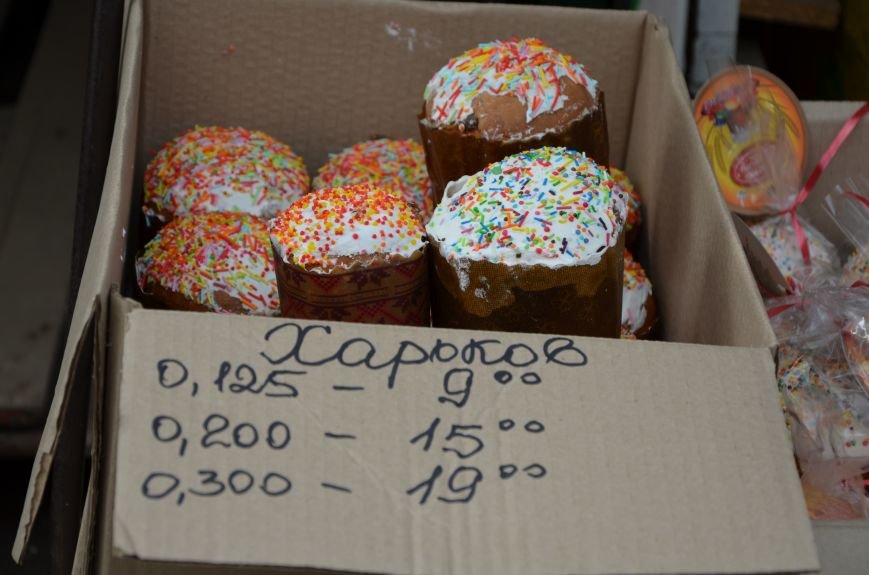 Харьков
0,125 - 9⁰⁰
0,200 - 15⁰⁰
0,300 - 19⁰⁰